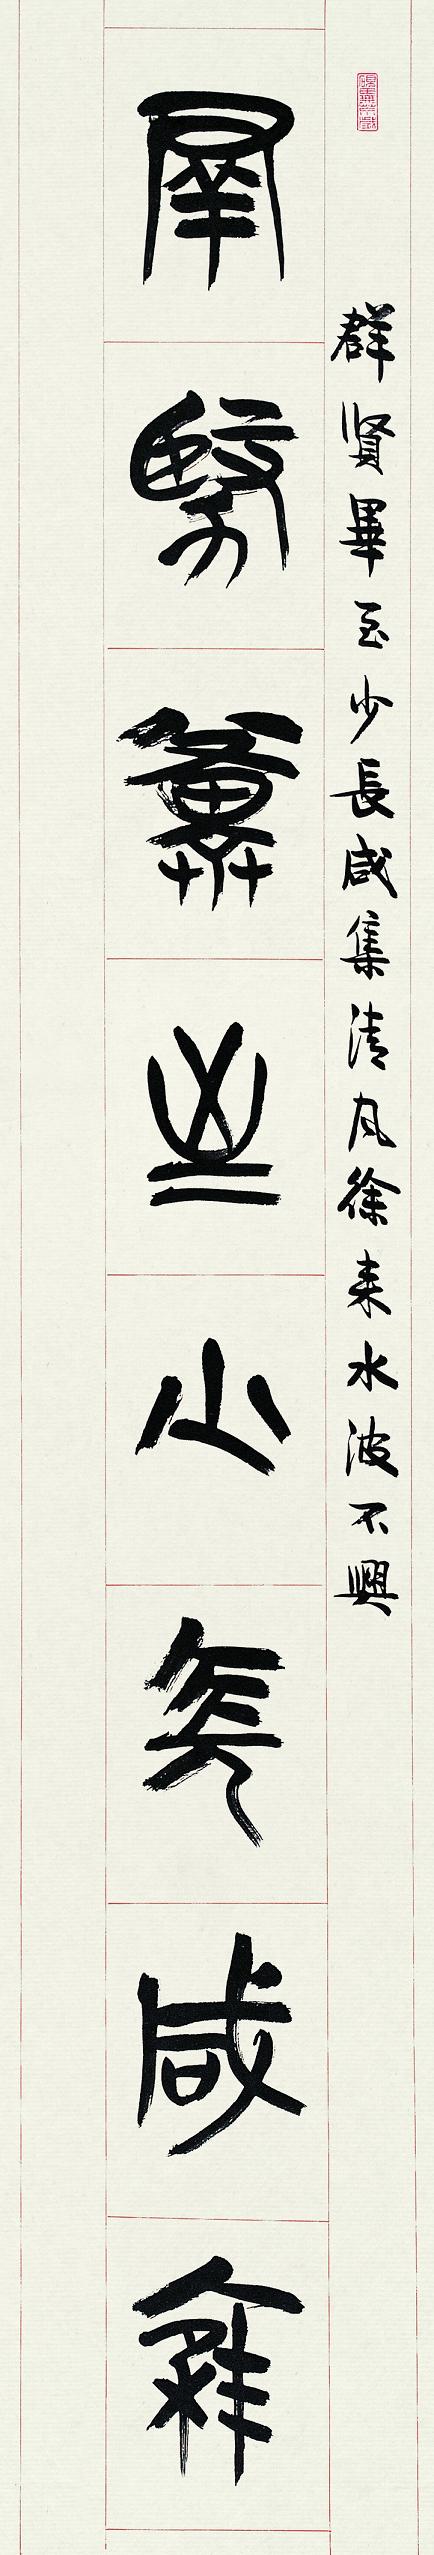 群賢畢至少長咸集清風徐来水波不興
羣賢畢至少長咸集